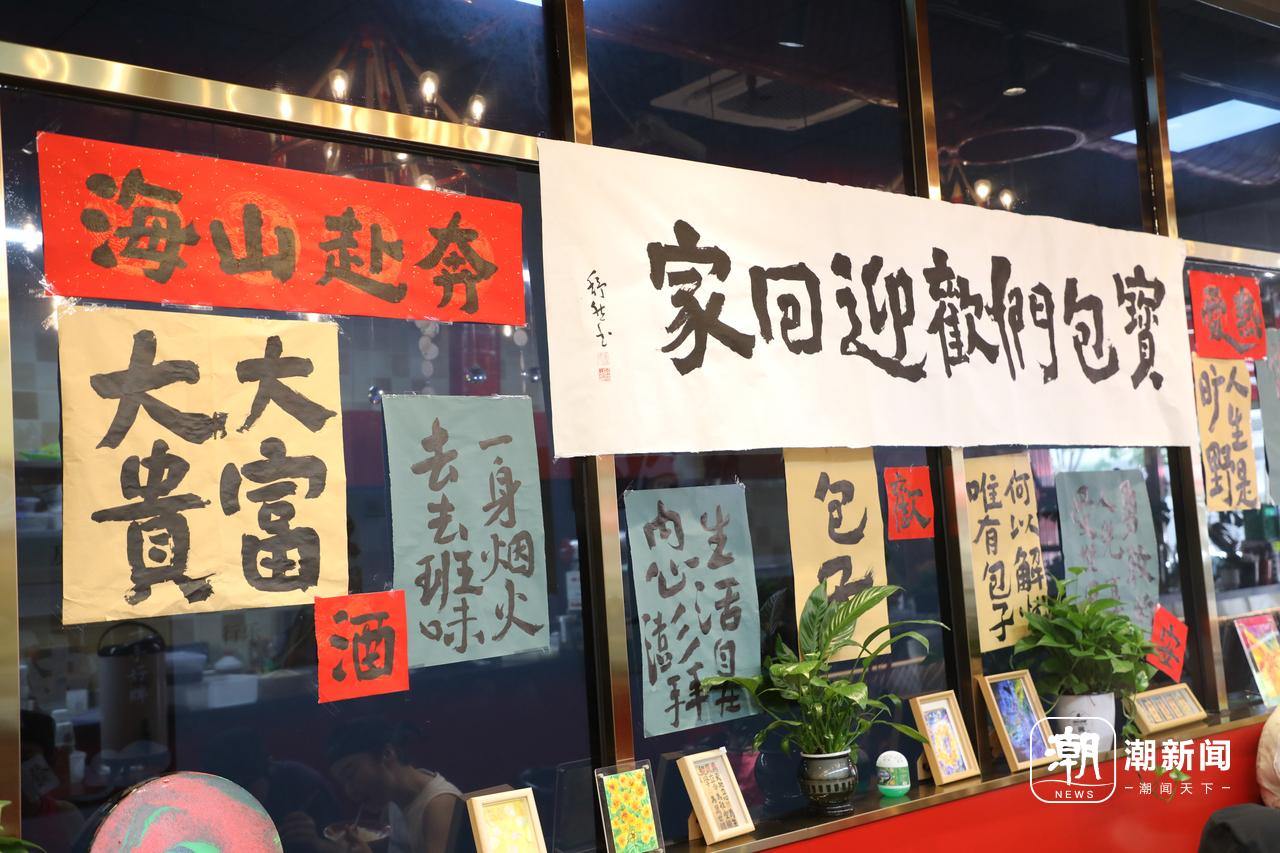 奔赴山海
寶包們歡迎回家
大富
大貴
酒
一身烟火
去去班味
生活自在
内心澎
包子
歡
何以解
唯有包子
人生是
旷野
潮
NEWS
潮新闻
潮闻天下